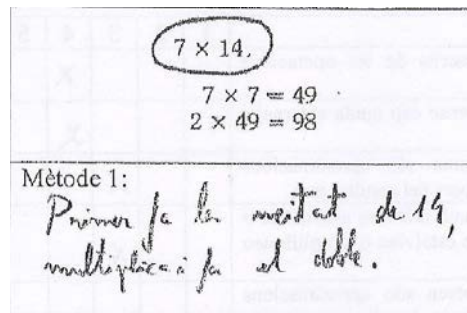 7 × 14.
7 × 7 = 49
2 × 49 = 98
Mètode 1:
Primer fa la meitat de 14,
multiplica i fa el doble.